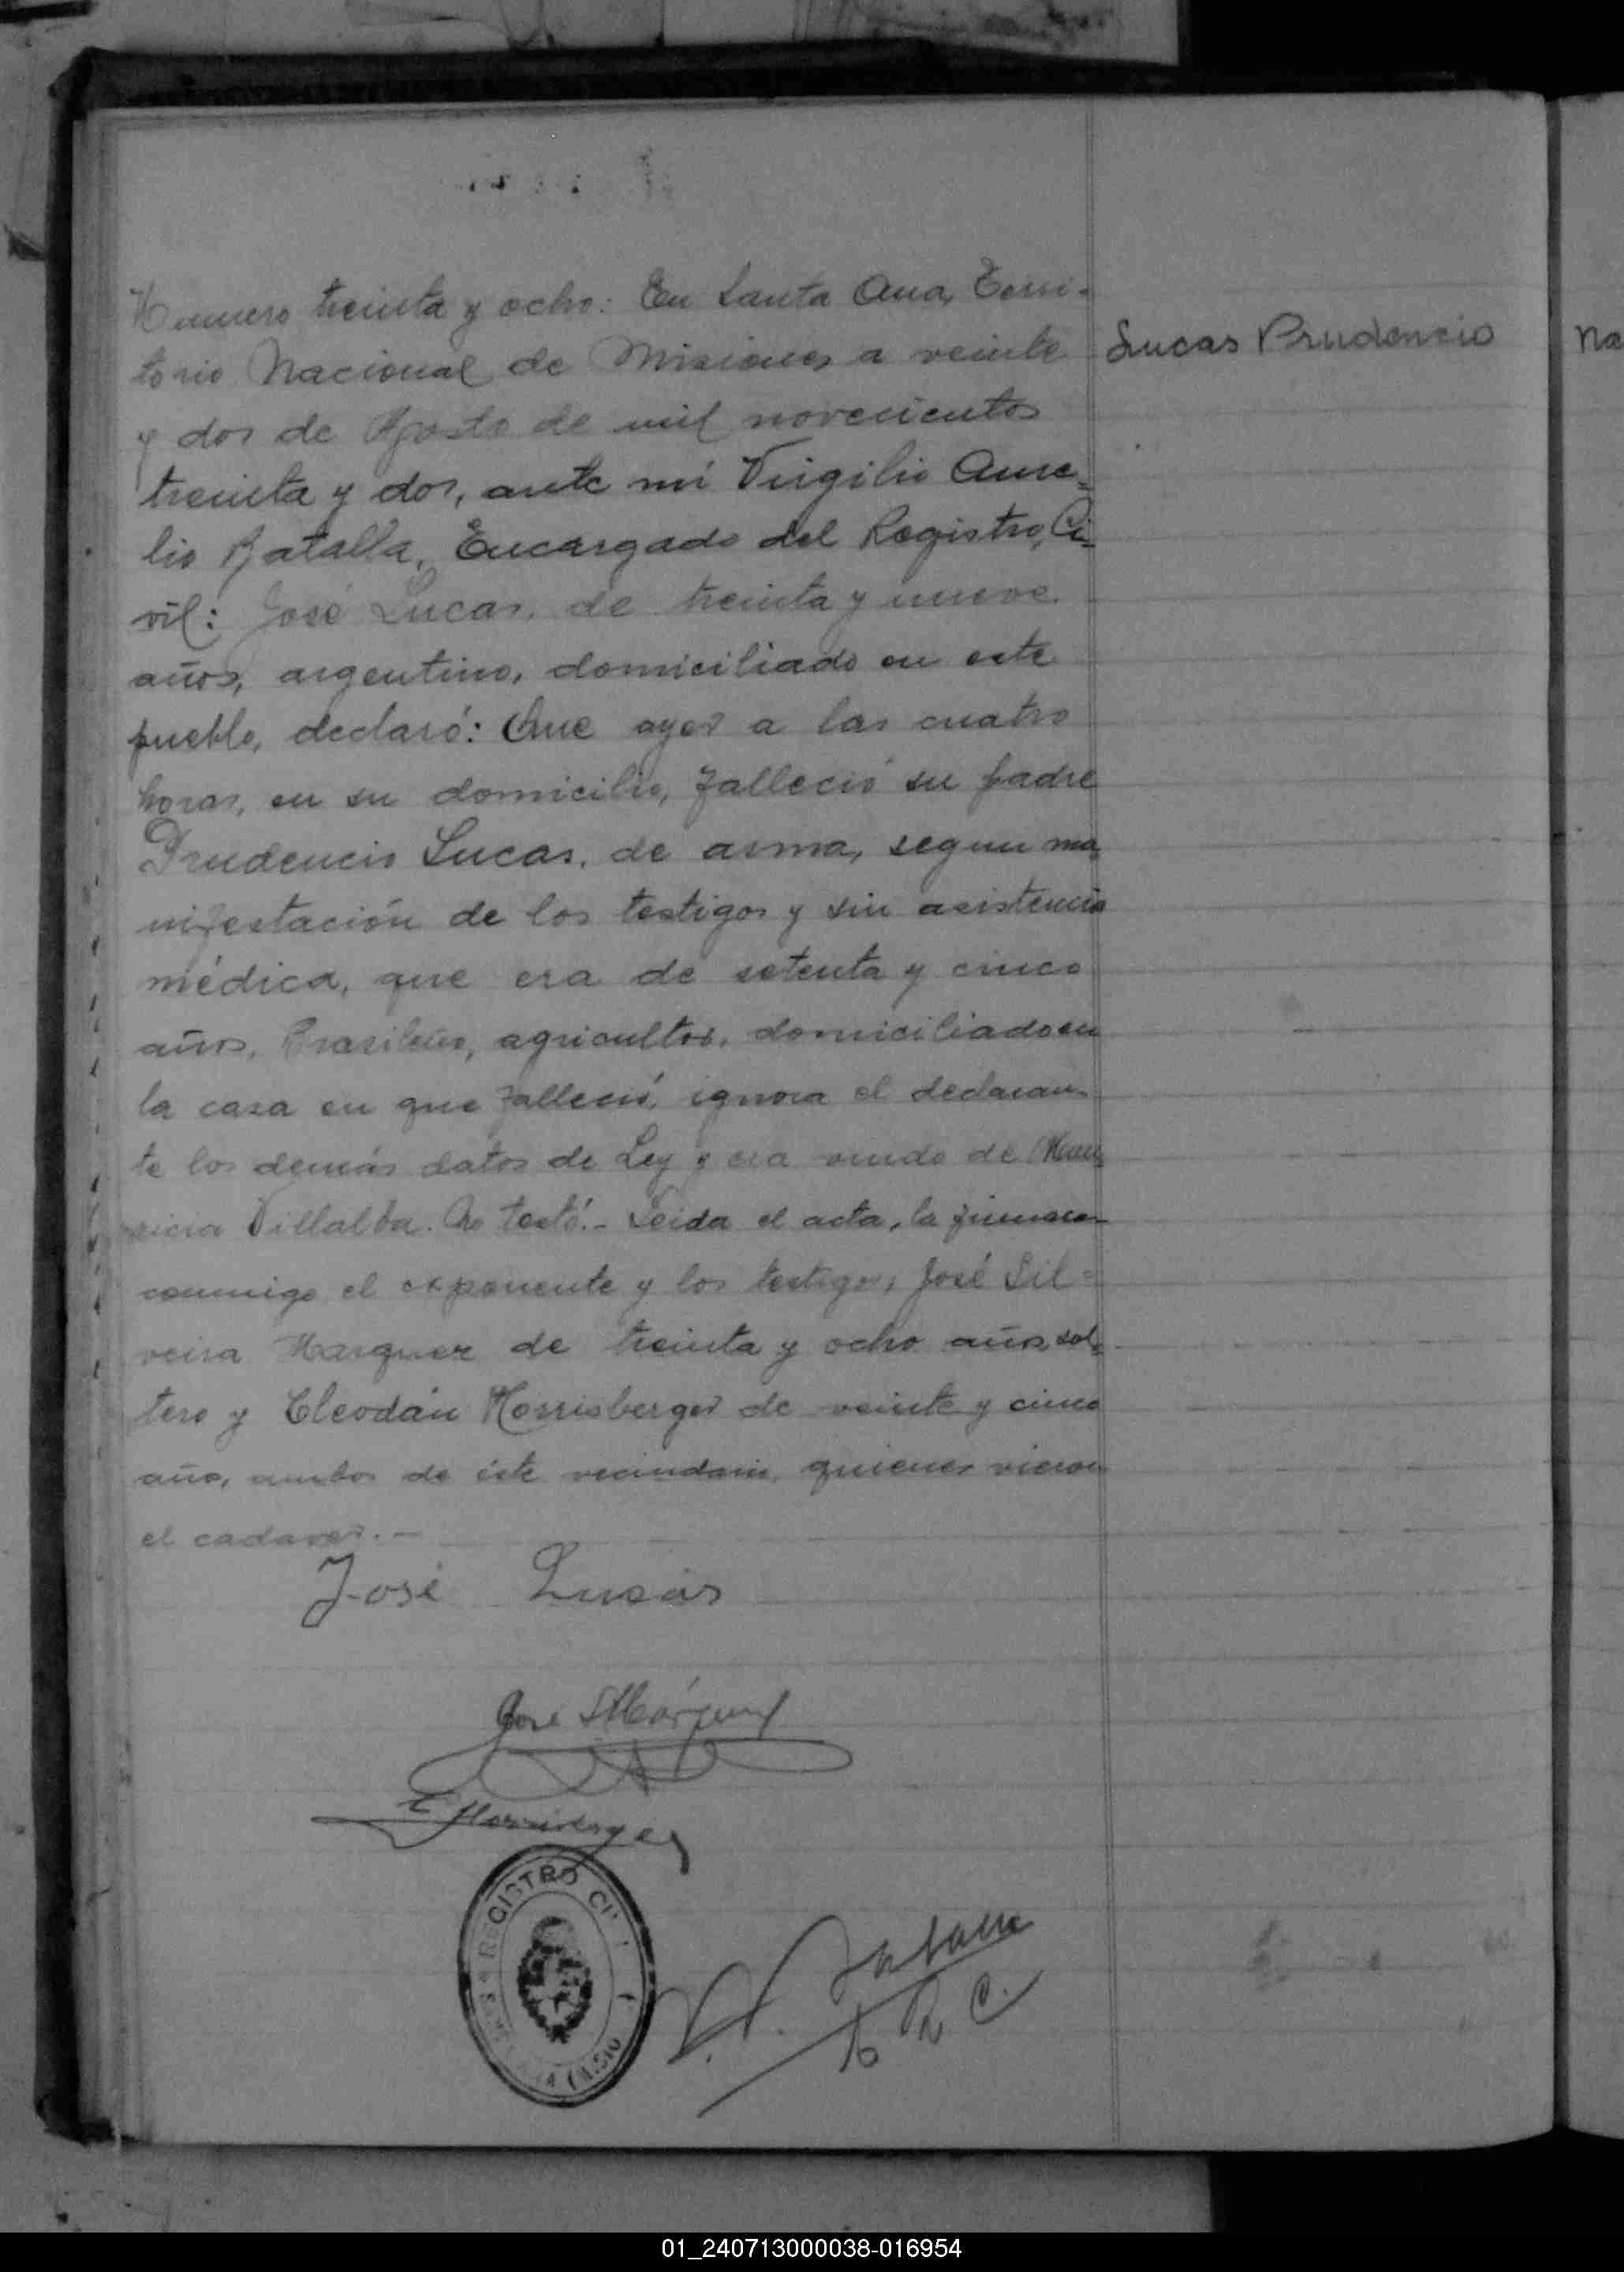 Numero treinta y ocho: En Santa Ana, Terri-
torio Nacional de Misiones a veinte
y dos de Agosto de mil novecientos
treinta y dos, ante mi Virgilio Aure=
lio Batalla, Encargado del Registro Ci=
vil: José Lucas, de treinta y nueve
años, argentino, domiciliado en este
pueblo, declaró: Que ayer a las cuatro
horas, en su domicilio, falleció su padre
Prudencio Lucas, de asma, segun ma=
nifestación de los testigos y sin asistencia
médica, que era de setenta y cinco
años, Brasileño, agricultor, domiciliado en
la casa en que falleció, ignora el declaran-
te los demás datos de Ley y era viudo de Mau=
ricia Villalba. No testó.- Leida el acta, la firmaron
conmigo el exponente y los testigos, José Sil=
veira Marquez de treinta y ocho años, sol=
tero y Cleodán Morrisberger de veinte y cinco
años, ambos de éste vecindario, quienes vieron
el cadaver.-
José Lucas
José S Márquez
REGISTRO CI
Batalla
E. R. C.
Lucas Prudencio
Na
01_240713000038-016954